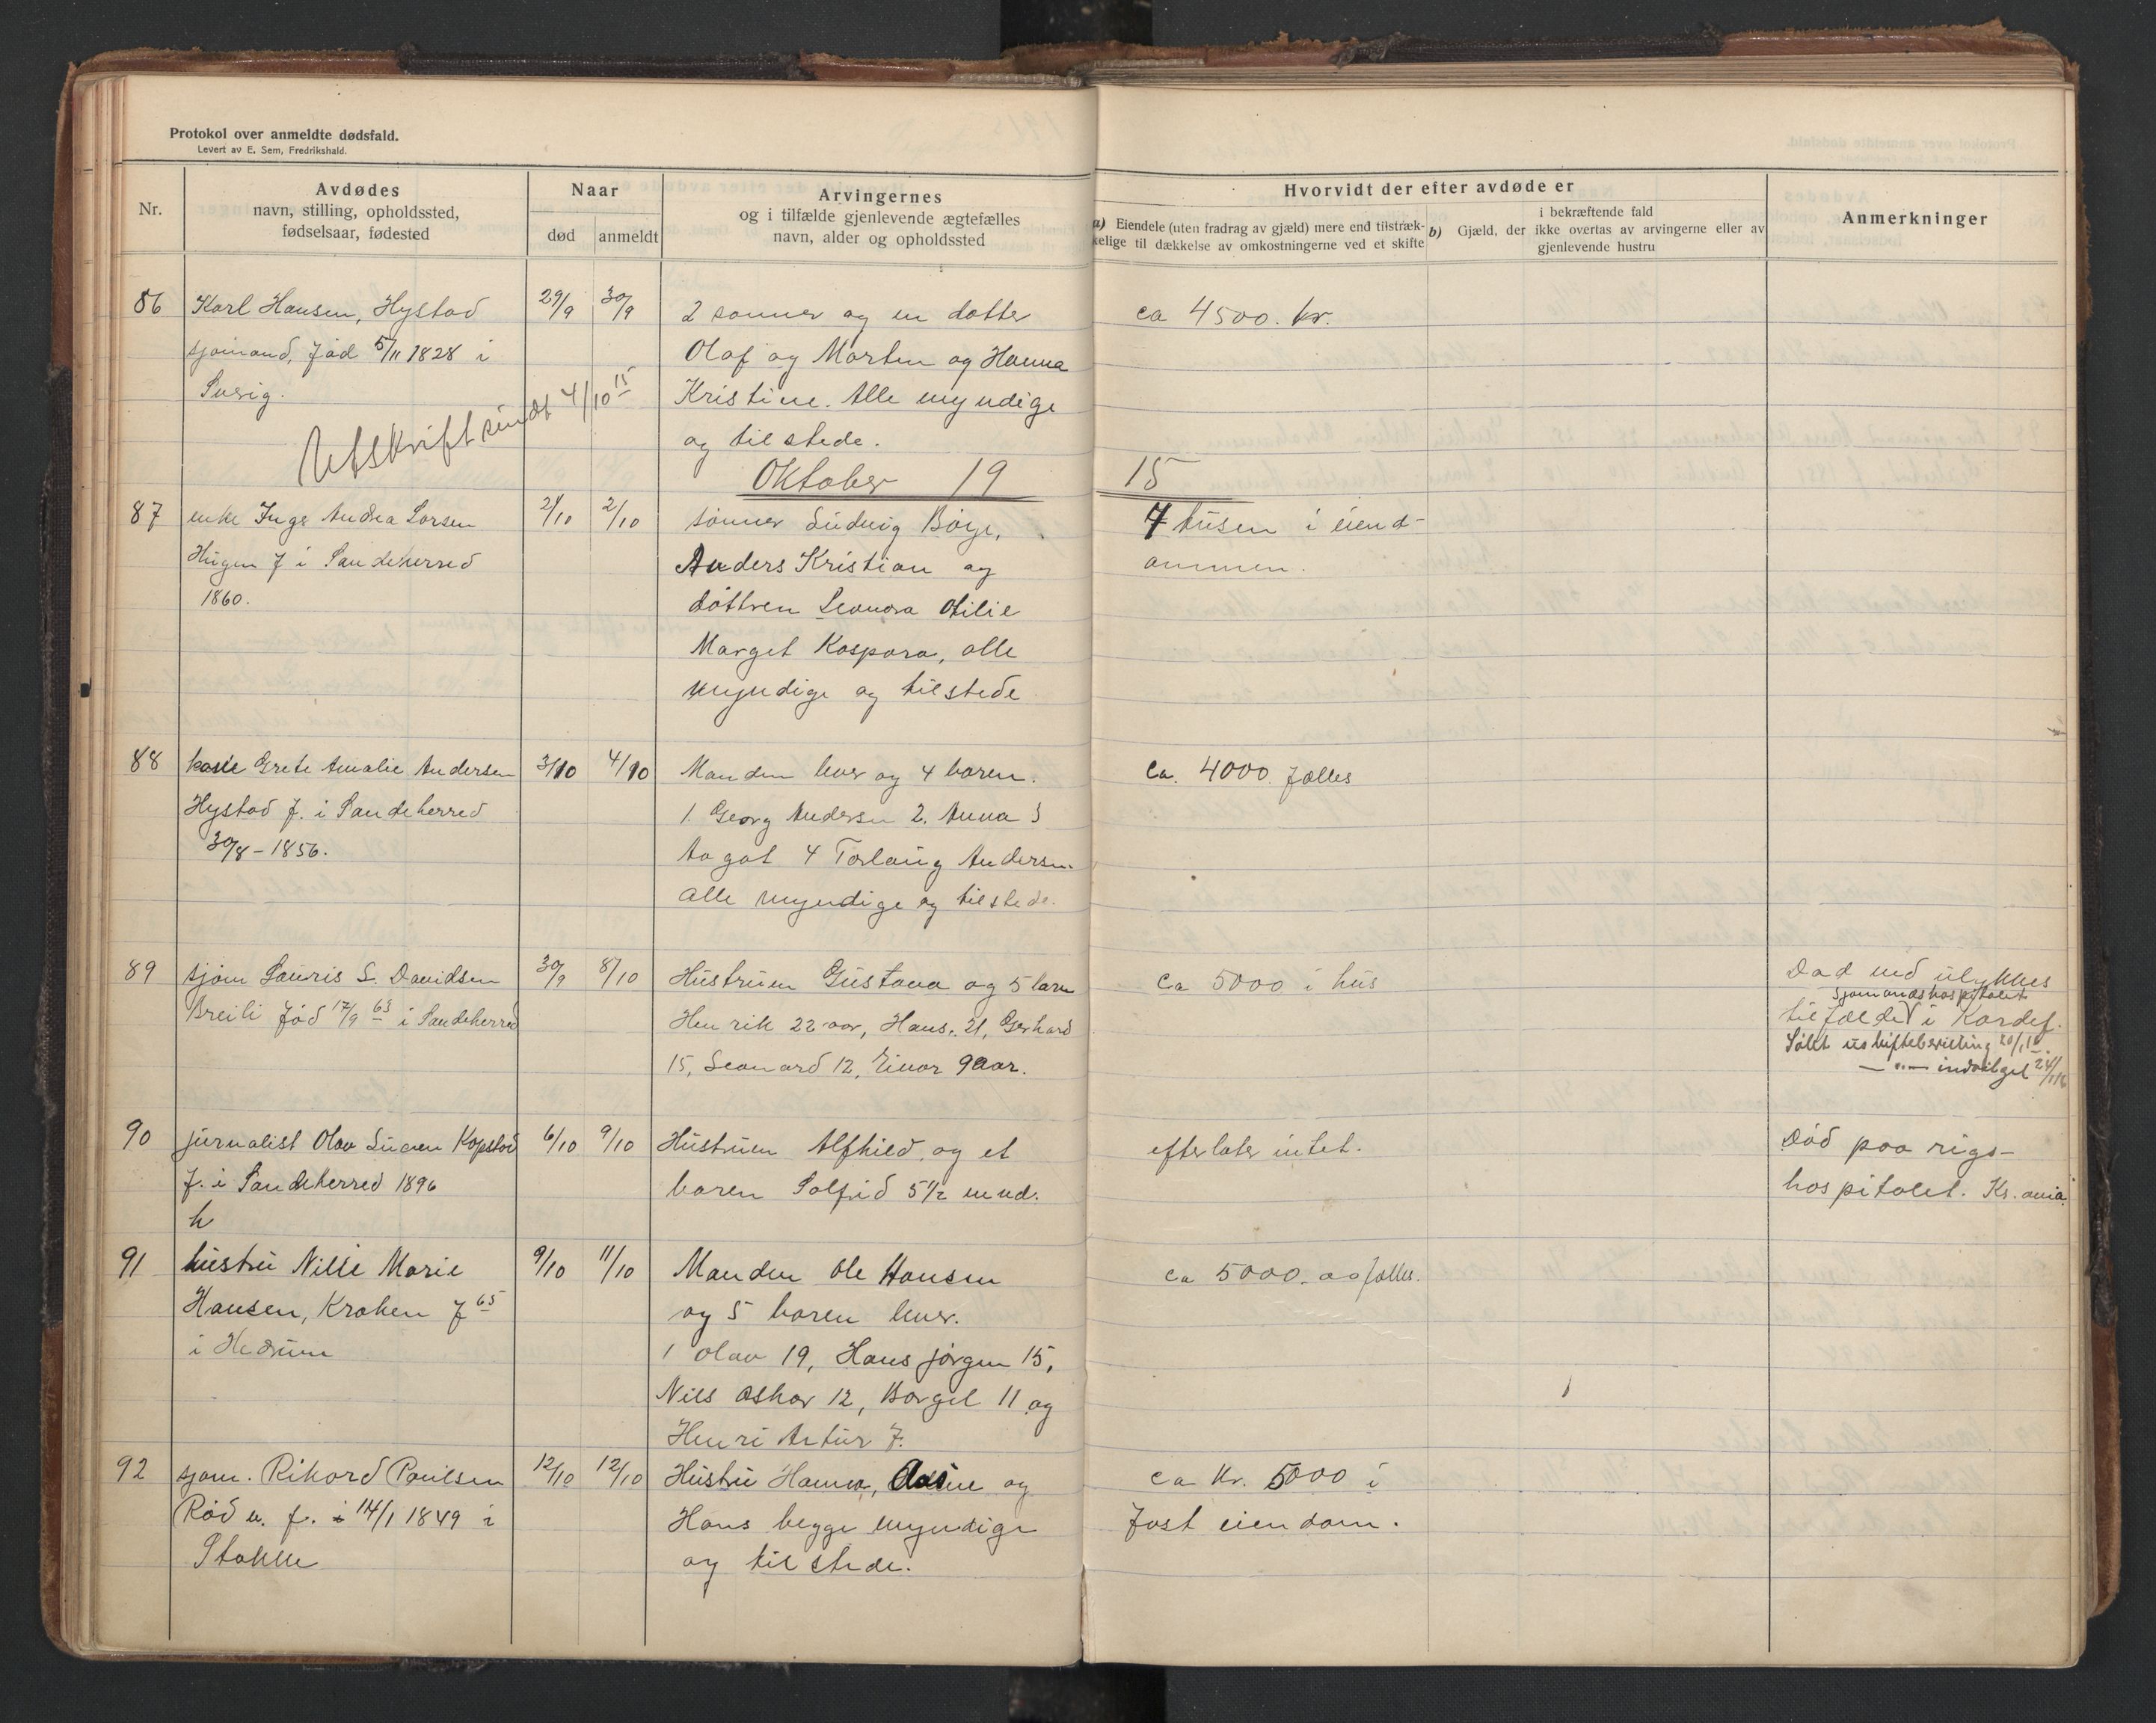 Protokol over anmeldte dødsfald.
Levert av E. Sem, Fredrikshald.
Nr.
Avdødes
navn, stilling, opholdssted,
fødselsaar, fødested
Naar
død
anmeldt
Arvingernes
og i tilfælde gjenlevende ægtefælles
navn, alder og opholdssted
Hvorvidt der efter avdøde er
a) Eiendele (uten fradrag av gjæld) mere end tilstræk-
kelige til dækkelse av omkostningerne ved et skifte
i bekræftende fald
b) Gjæld, der ikke overtas av arvingerne eller av
gjenlevende hustru
Anmerkninger
86
Karl Hansen, Hystad
sjømand, fød 5/11 1828 i
Sverig.
29/9
30/9
2 sønner og en datter
Olaf og Morten og Hanna
Kristine. Alle myndige
og tilstede.
ca 4500. kr.
Utskrift sendt 4/10 15
Oktober 19
15
87
enke Inge Andrea Larsen
Haugen f i Sandeherred
1860.
2/10
2/10
sønner Ludvig Børge,
Anders Kristian og
døttren Leonora Otilie
Marget Kaspara, alle
myndige og tilstede
4 tusen i eiend-
ommen.
88
kone Grete Amalie Andersen
Hystad f. i Sandeherred
30/8 - 1856.
3/10
4/10
Manden lever og 4 baren.
1. Georg Andersen 2. Anna 3
Aagot 4 Torlaug Andersen.
alle myndige og tilstede.
ca. 4000. fælles
89
sjøm Lauris S. Davidsen
Breili fød 17/9 63 i Sandeherred
30/9
8/10
Hustruen Gustava og 5 barn
Henrik 22 aar, Hans. 21, Gerhard
15, Leonard 12, Einar 9 aar.
ca 5000 i hus
Død ved ulykkes
sjømandshospitalet
tilfældet i Kardef.
Søkt uskiftebevilling 20/1 16
— " — indvilget 24/1 16
90
jurnalist Olav Kopstad
f. i Sandeherred 1896
h
6/10
9/10
Hustruen Alfhild, og et
baren Solfrid 5 1/2 mnd.
efterlater intet.
Død paa rigs-
hospitalet. Kr.ania.
91
hustru Nille Marie
Hansen, Kraken f 65
i Hedrum
9/10
11/10
Manden Ole Hansen
og 5 baren lever.
1 Olav 19, Hans Jørgen 15,
Nils Oskar 12, Borgel 11 og
Henri Artur 7.
ca 5000. fælles.
92
sjøm. Rikard Paulsen
Rød u. f. i 14/1 1849 i
Stokke
12/10
12/10
Hustru Hanna, og
Hans begge myndige
og tilstede.
ca kr. 5000 i
fast eiendom.